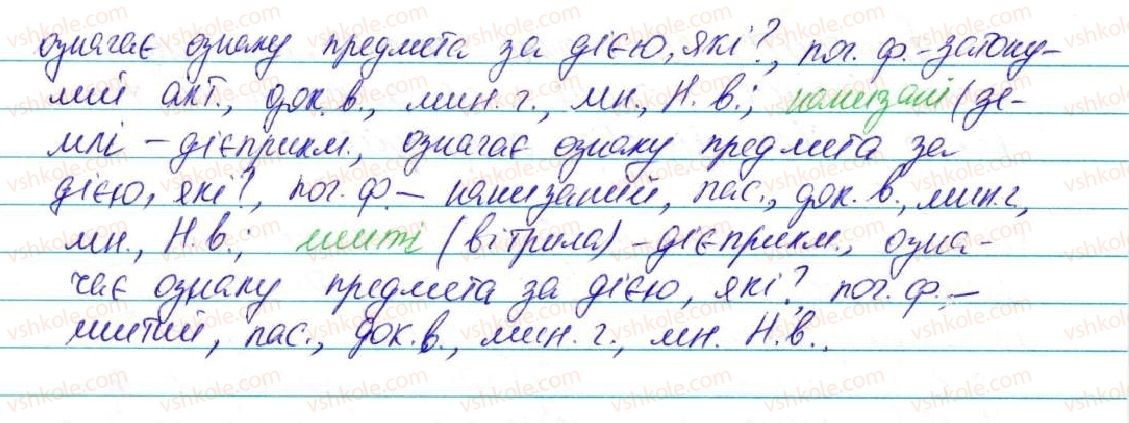 означає ознаку предмета за дією, які?, поч. ф. - затону-
лий акт., док. в., мин. ч., мн., Н. в.; нанизані (зе-
млі - дієприкм., означає ознаку предмета за
дією, які?, поч. ф. - нанизаний, пас., док. в., мин. ч,
мн., Н. в.; шиті (вітрила) - дієприкм., озна-
чає ознаку предмета за дією, які?, поч. ф. -
шитий, пас., док. в., мин. ч., мн. Н. в..